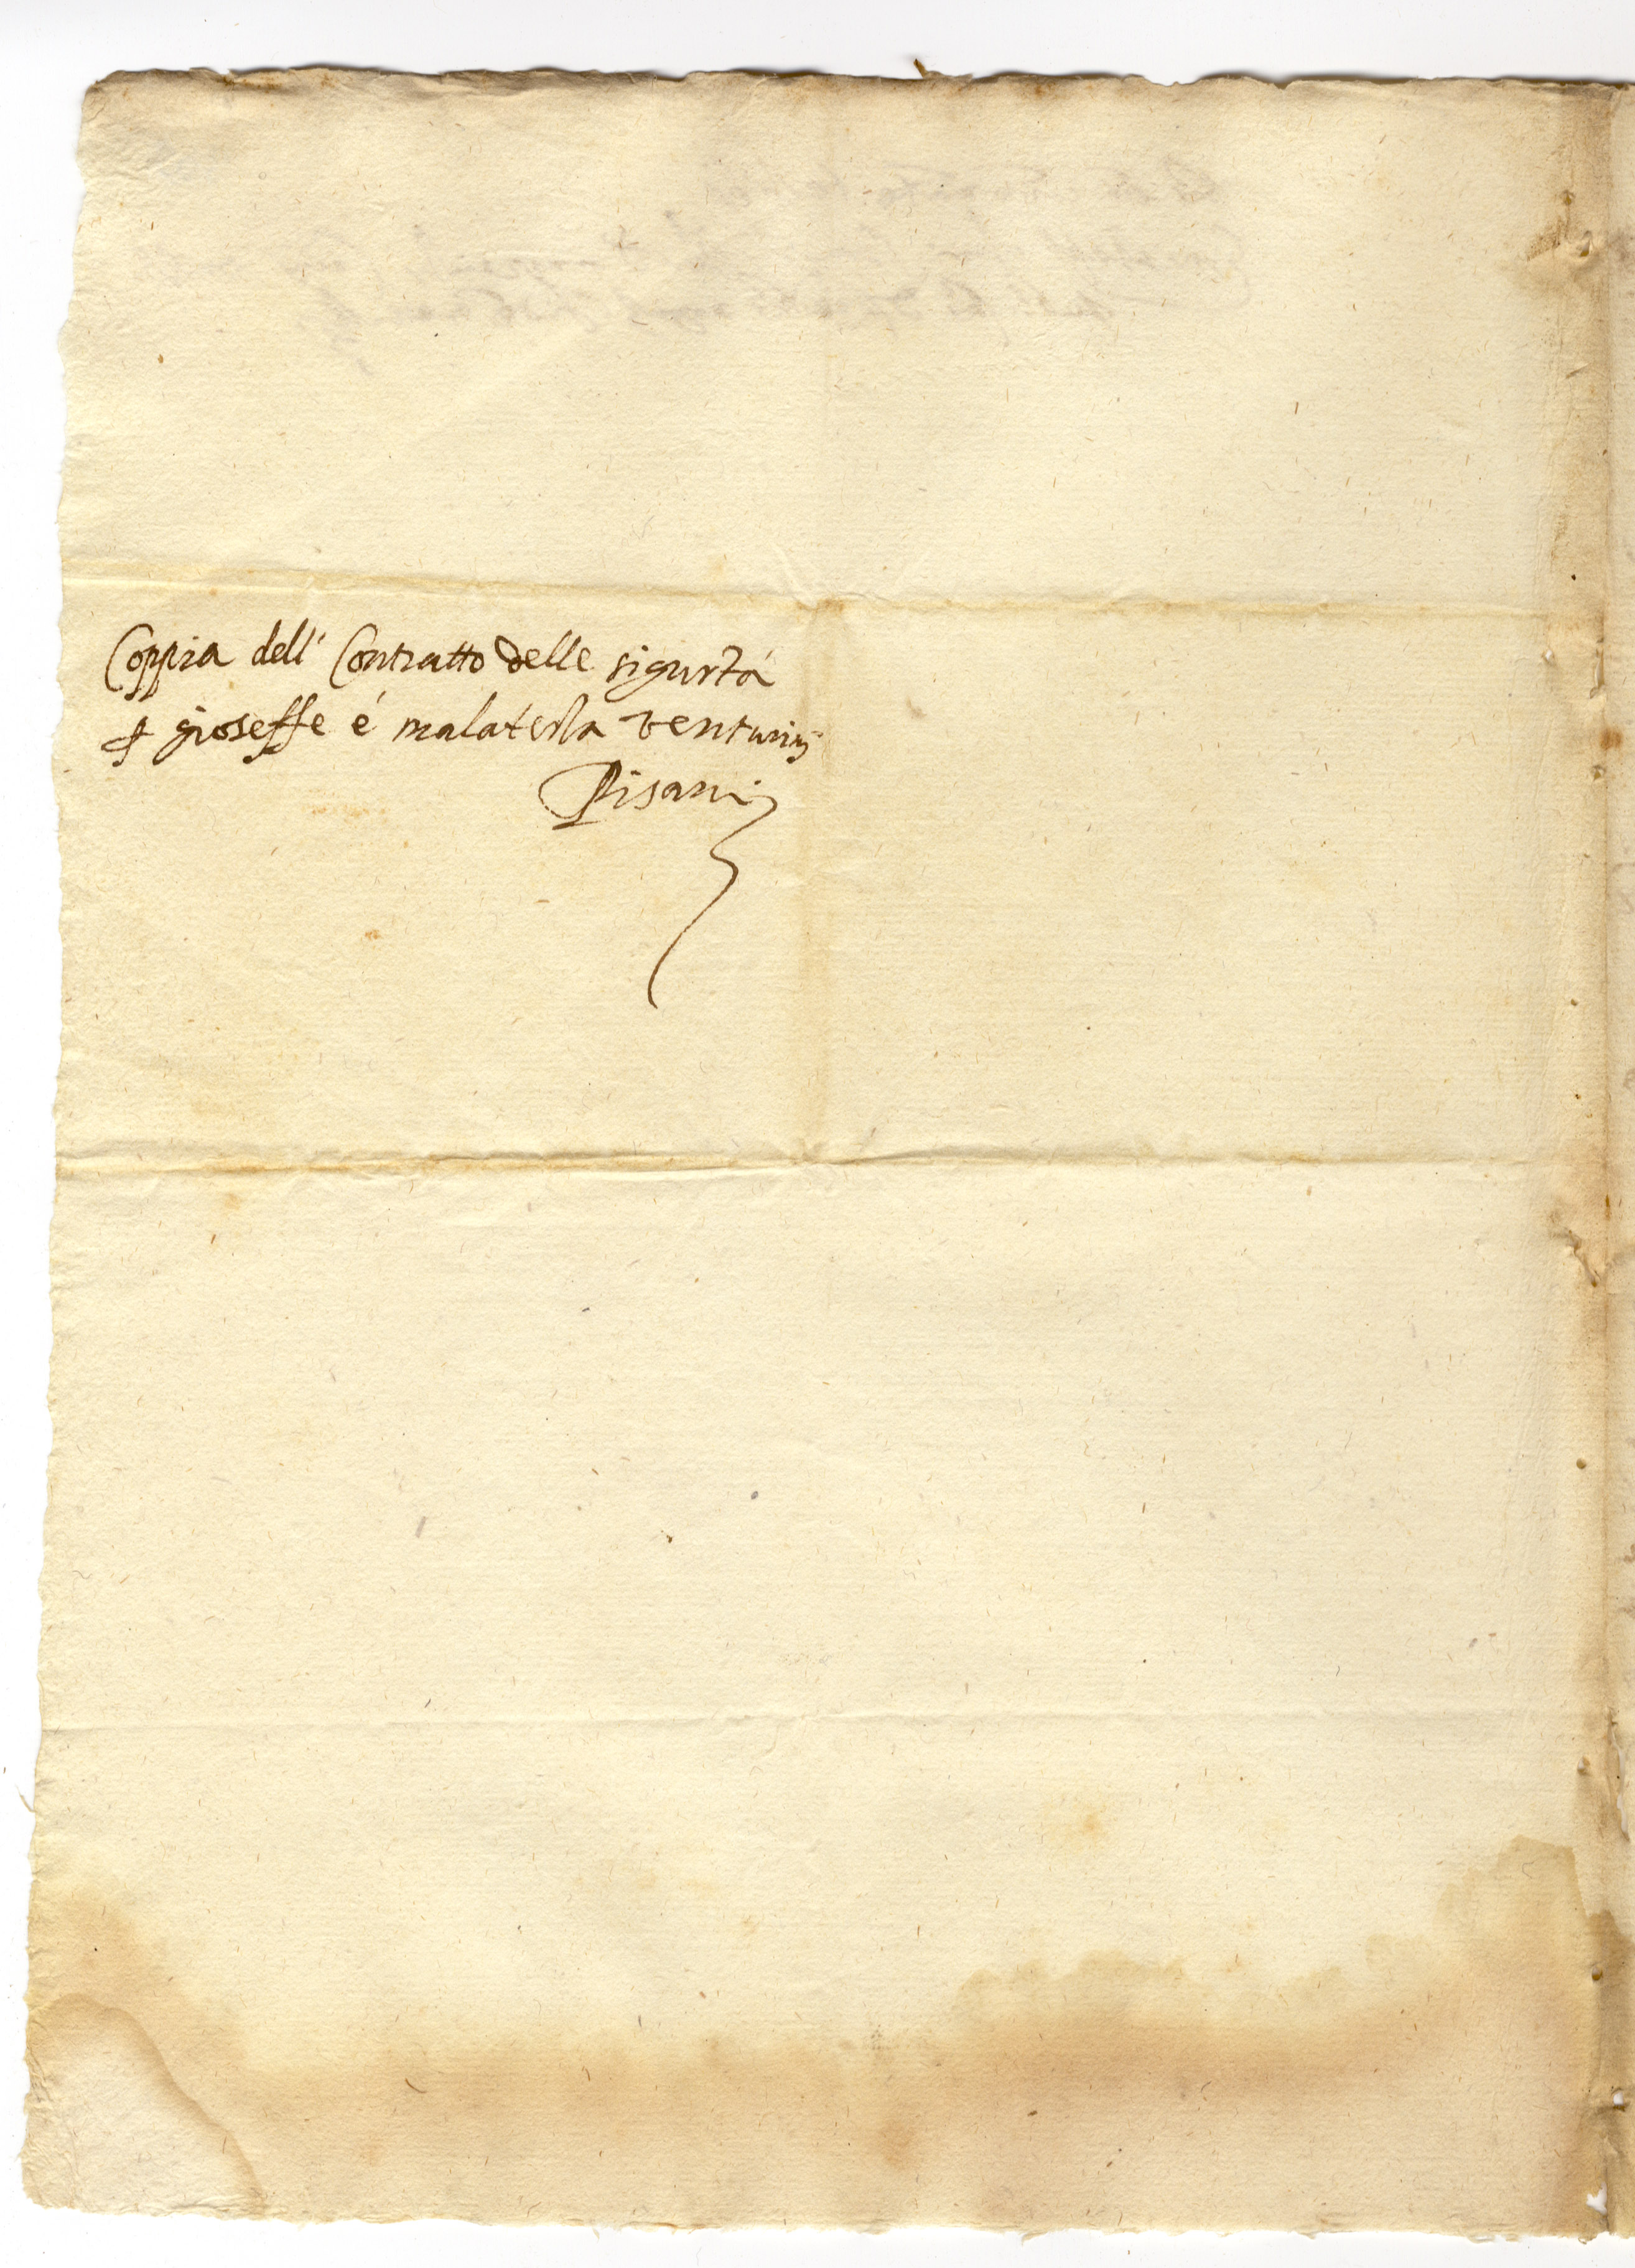 Coppia dell' Contratto delle sigurtá
gioseffe é malatesta venturinj
Pisani